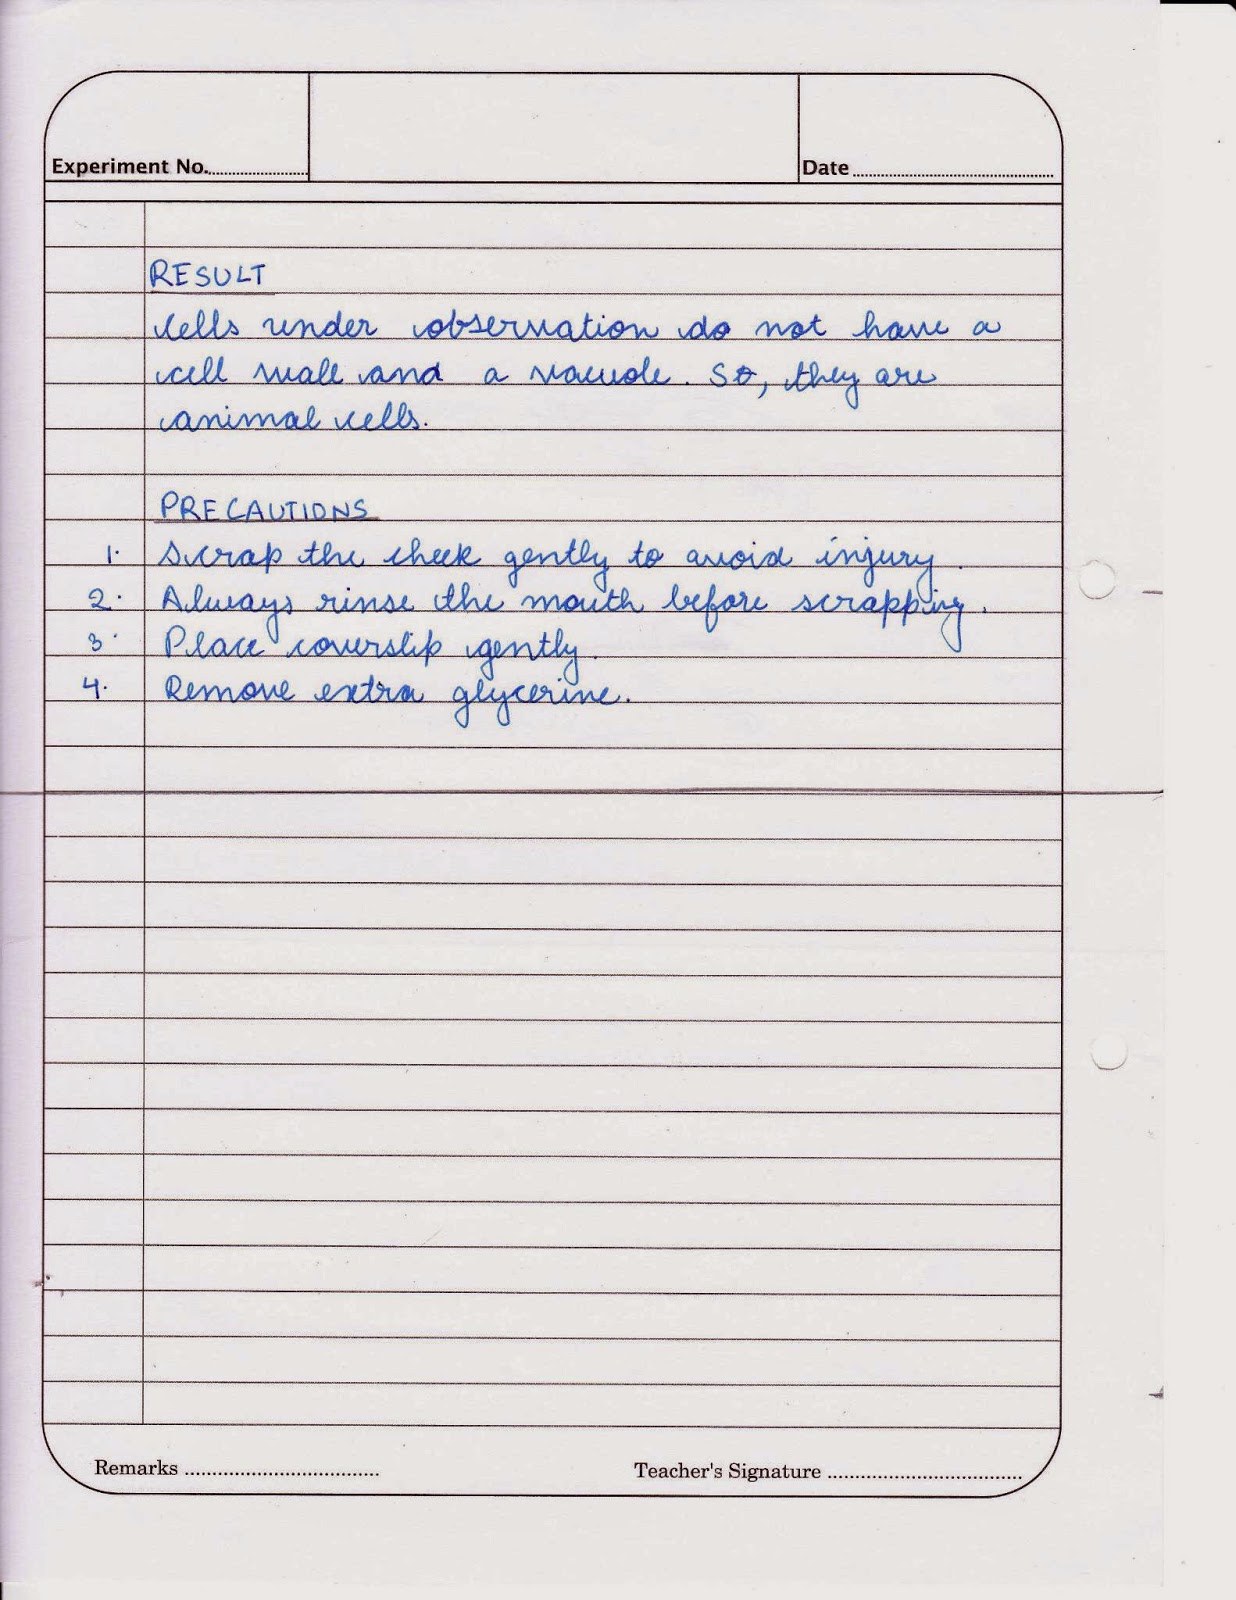 Experiment No. Date
RESULT
Cells under observation do not have a
cell wall and a vacuole. So, they are
animal cells.
PRECAUTIONS
1. Scrap the cheek gently to avoid injury.
2. Always rinse the mouth before scrapping.
3. Place coverslip gently.
4. Remove extra glycerine.
Remarks Teacher's Signature